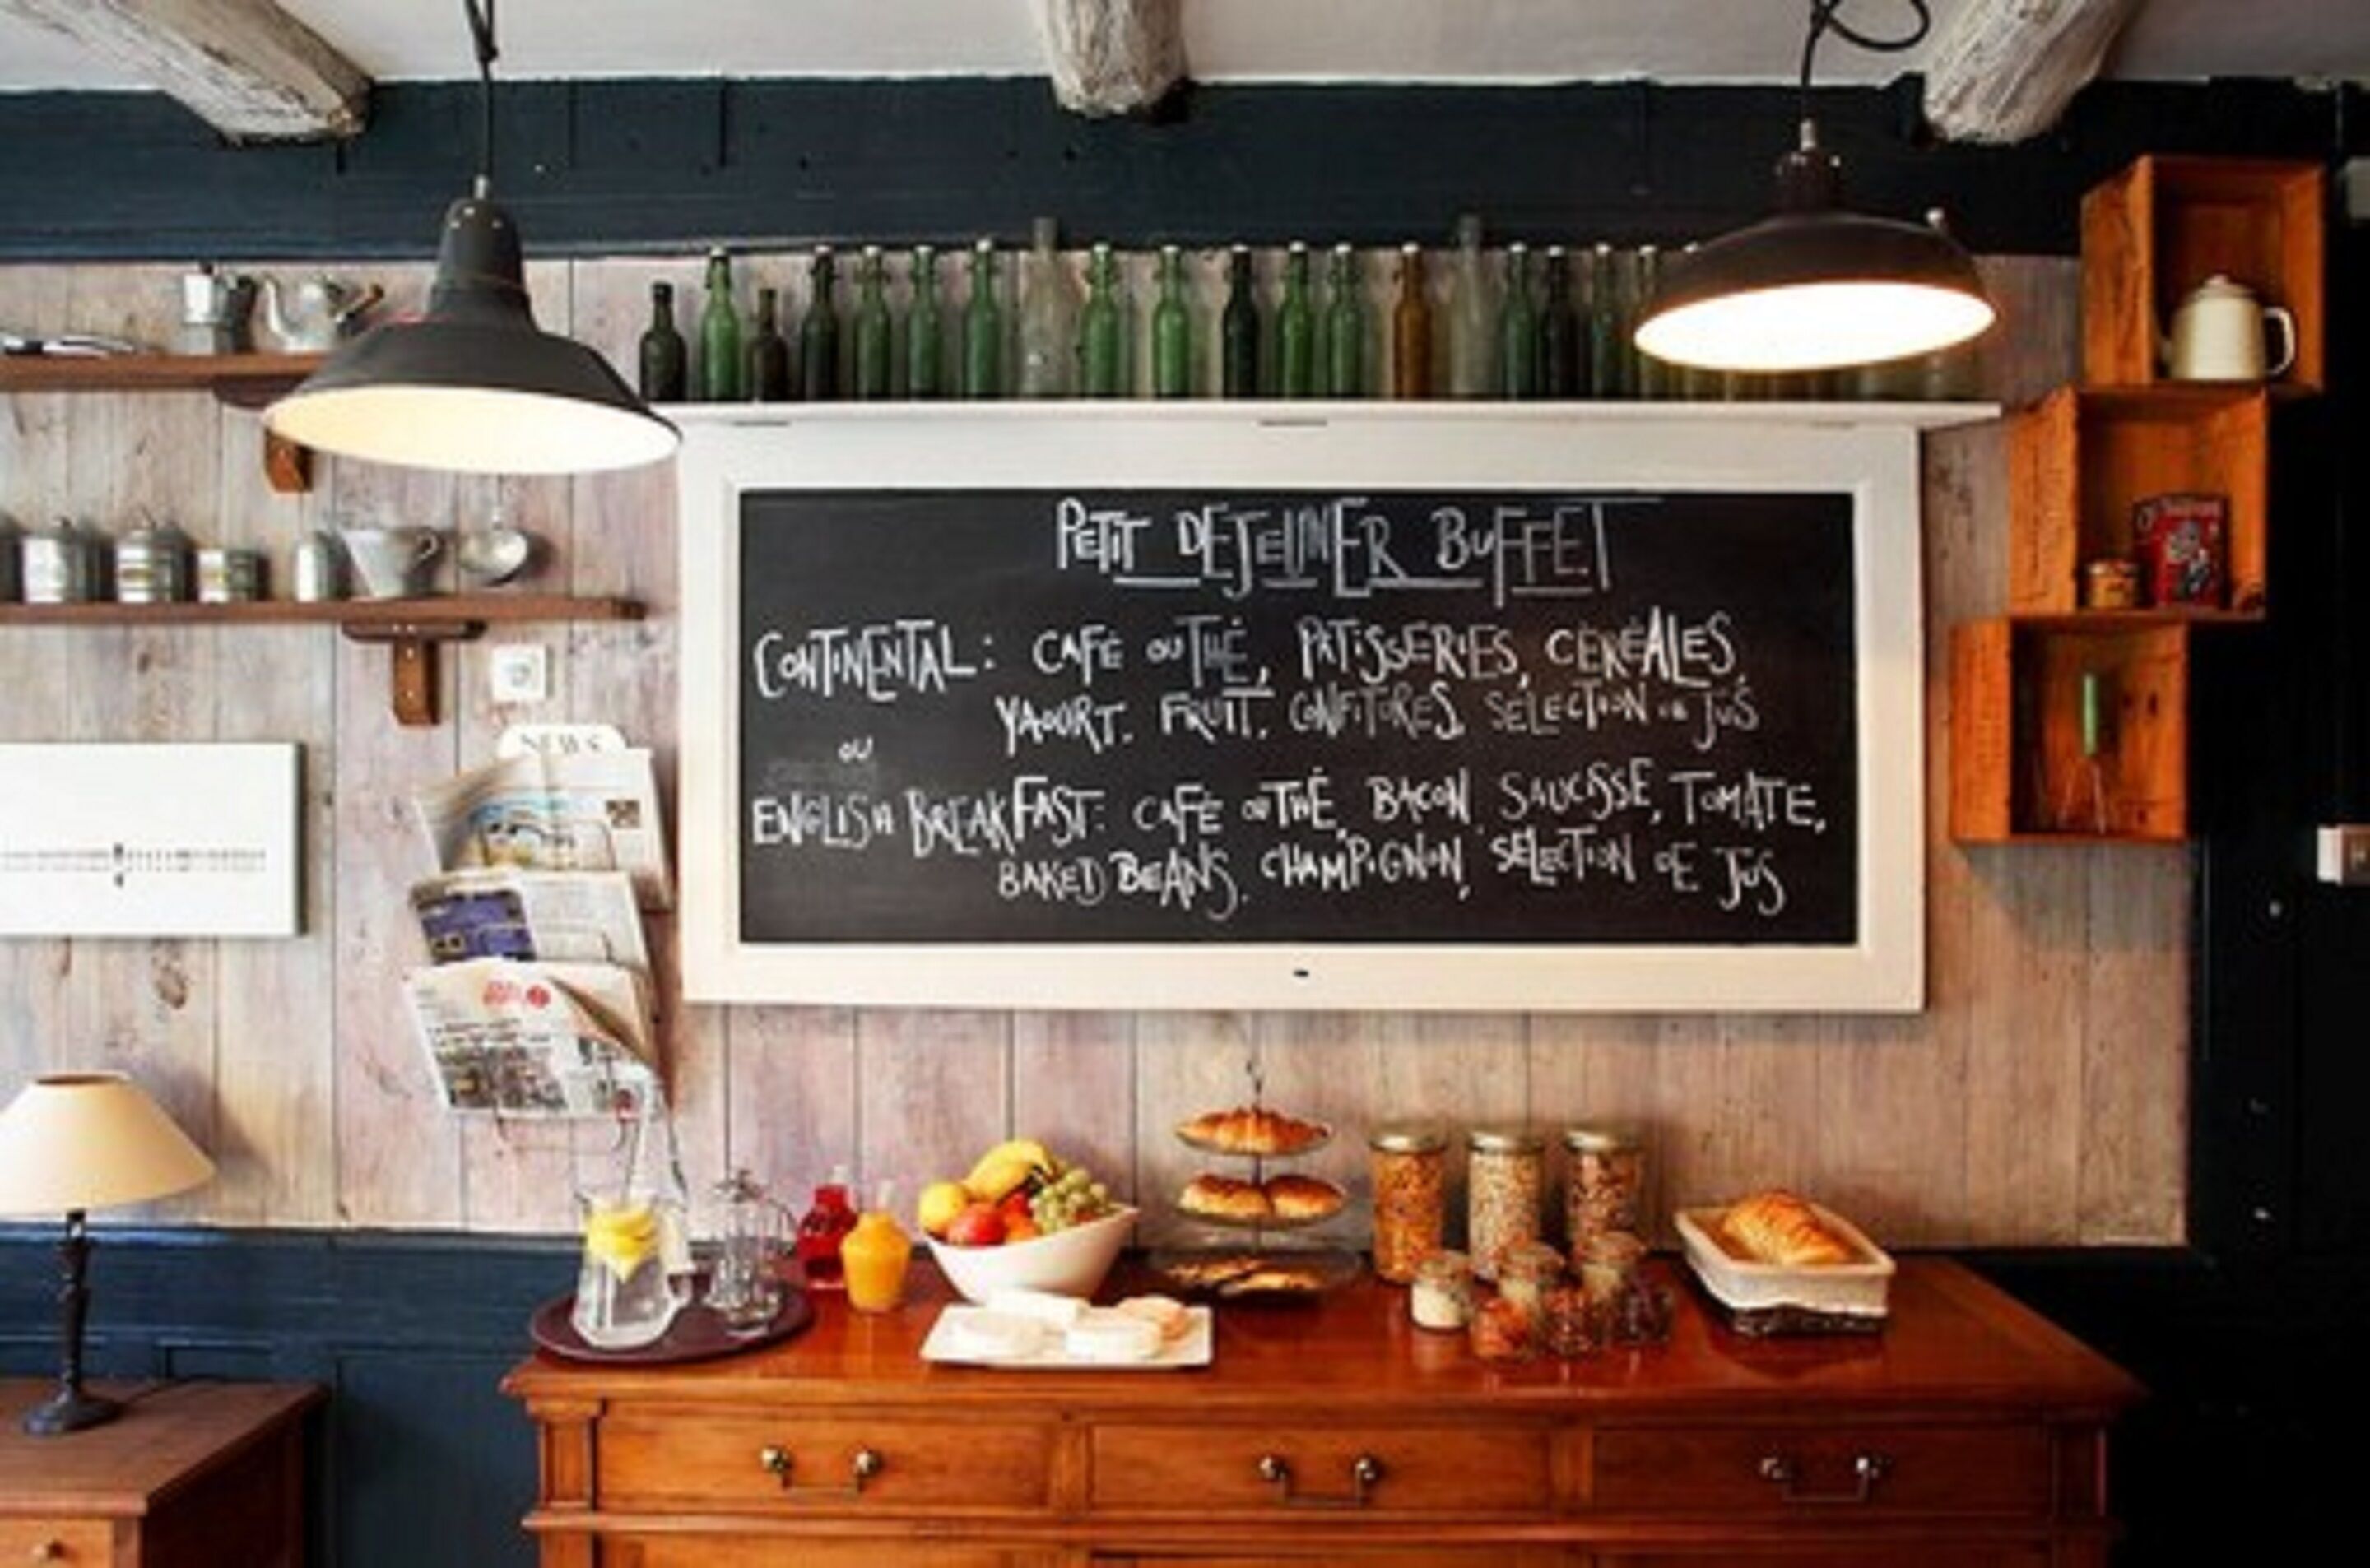 PETIT DEJEUNER BUFFET
CONTINENTAL: CAFÉ OU THÉ, PATISSERIES, CÉRÉALES,
YAOURT, FRUIT, CONFITURES, SÉLECTION DE JUS
OU
ENGLISH BREAKFAST: CAFÉ OU THÉ, BACON, SAUCISSE, TOMATE,
BAKED BEANS, CHAMPIGNON, SÉLECTION DE JUS
NEWS